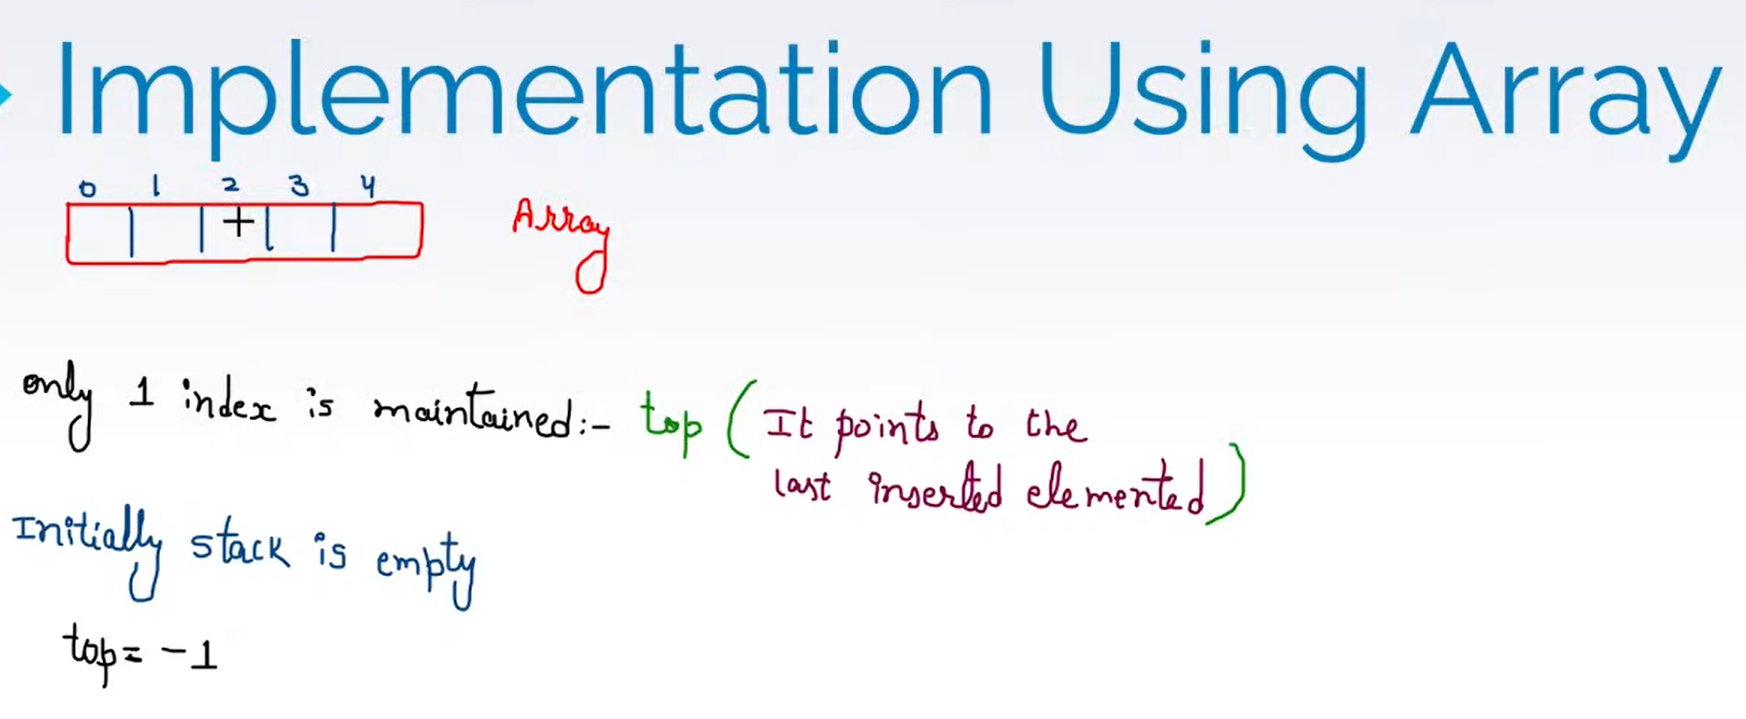 Implementation Using Array
0 1 2 3 4
Array
only 1 index is maintained:- top (It points to the
last inserted elemented)
Initially stack is empty
top = -1